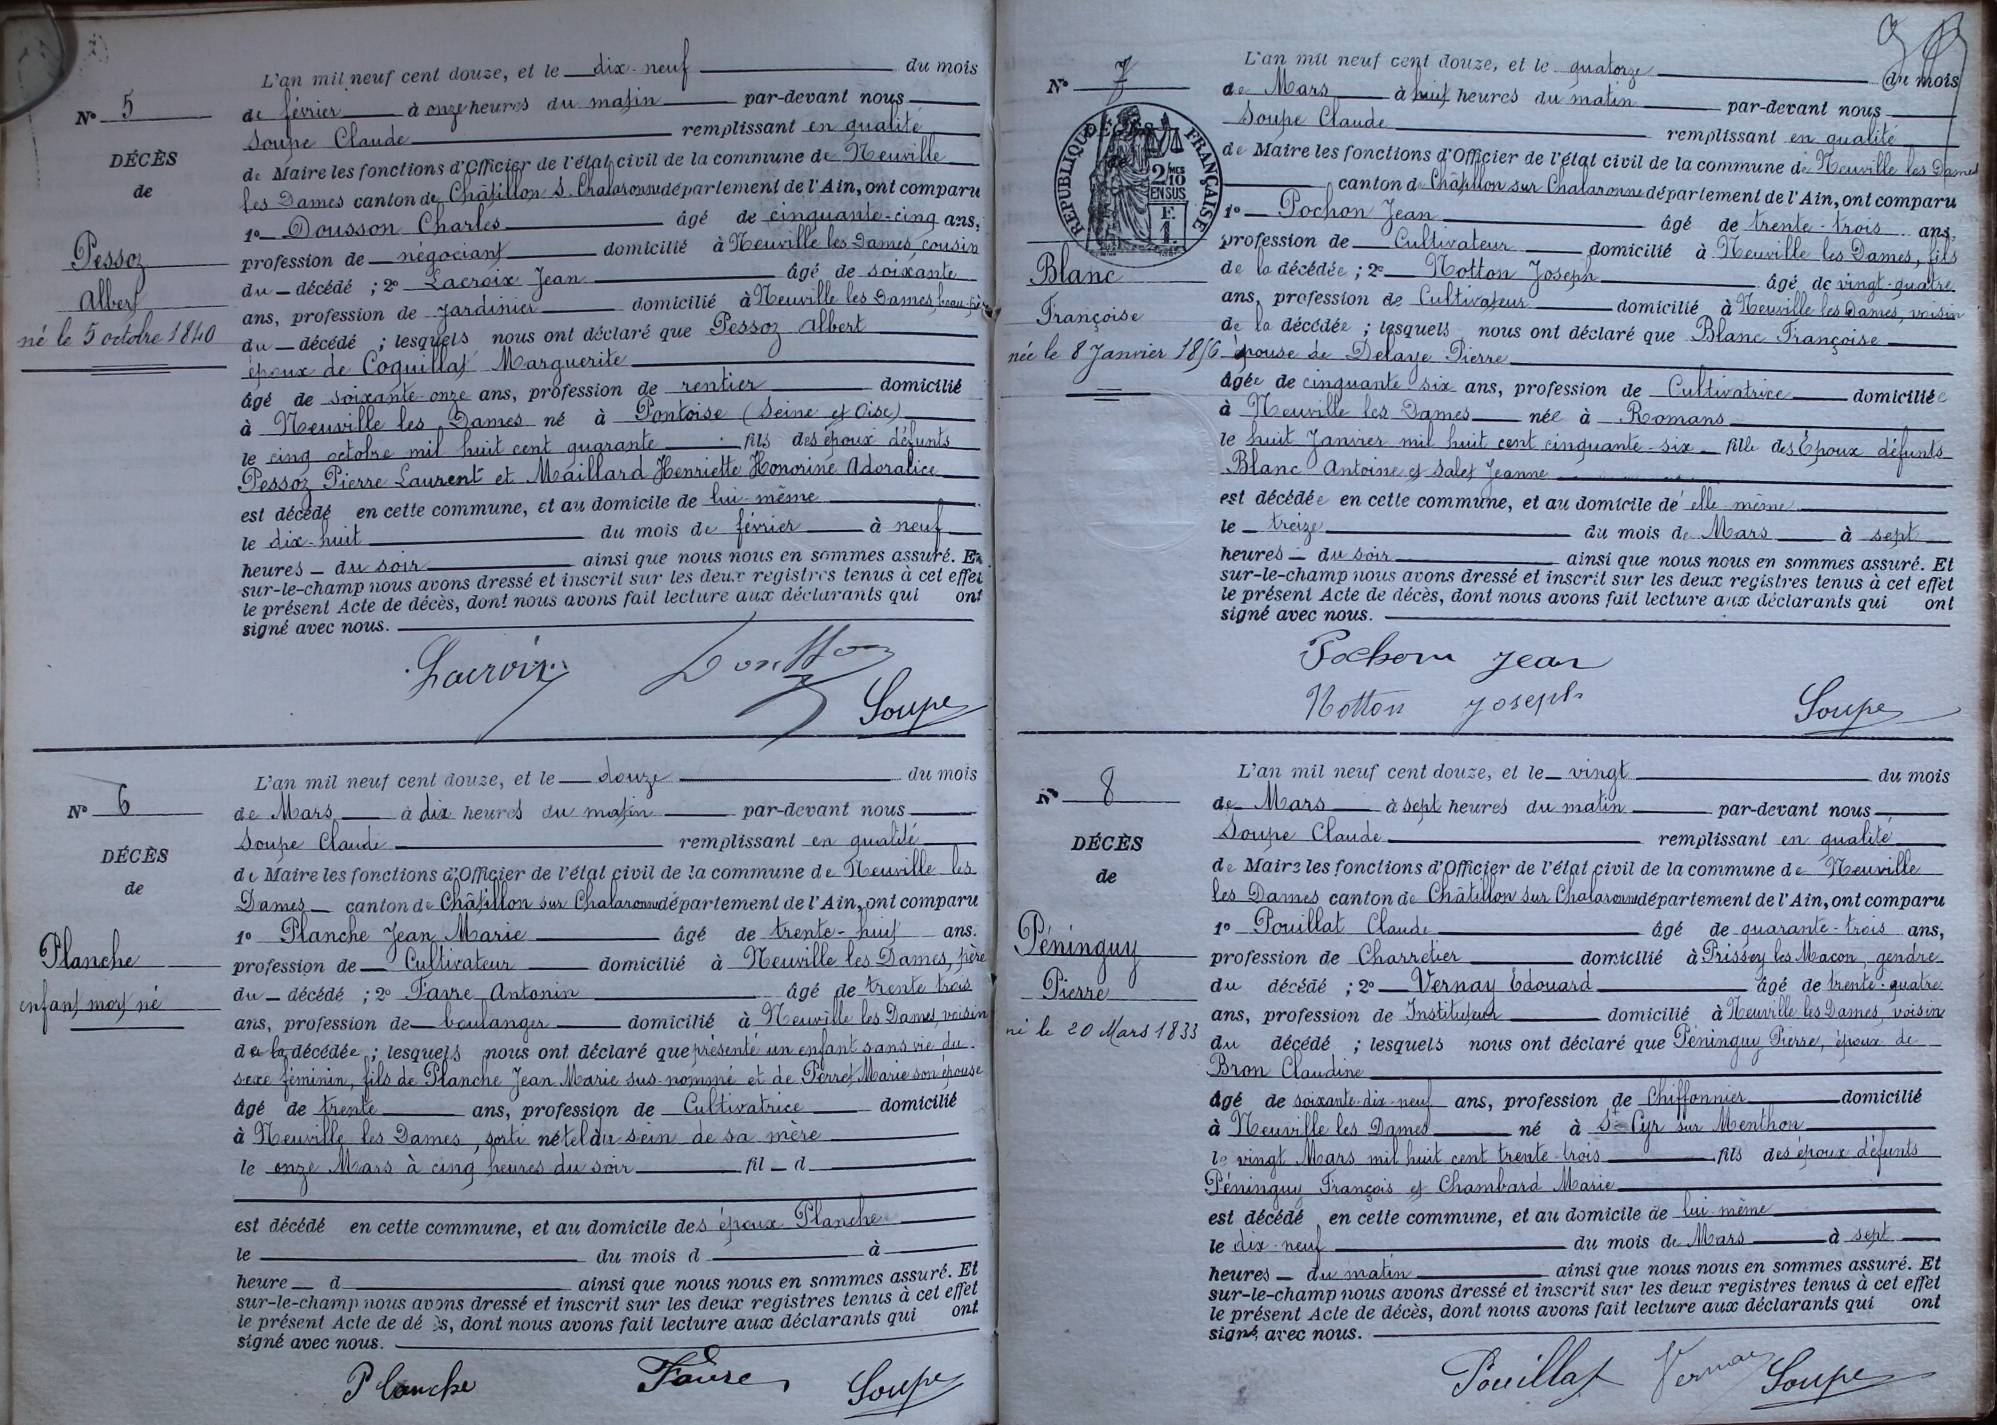 L'an mil neuf cent douze, et le dix-neuf du mois
N° 5
de février à onze heures du matin par-devant nous
Soupe Claude remplissant en qualité
DÉCÈS
de Maire les fonctions d'Officier de l'état civil de la commune de Neuville
de
les Dames canton de Châtillon s. Chalaronne département de l'Ain, ont comparu
1° Dousson Charles âgé de cinquante-cinq ans,
Pessoz
profession de négociant domicilié à Neuville les Dames, cousin
du décédé ; 2° Lacroix Jean âgé de soixante
Albert
ans, profession de jardinier domicilié à Neuville les Dames, beau-frère
né le 5 octobre 1840
du décédé ; lesquels nous ont déclaré que Pessoz Albert
époux de Coquillat Marguerite
âgé de soixante-onze ans, profession de rentier domicilié
à Neuville les Dames né à Pontoise (Seine et Oise)
le cinq octobre mil huit cent quarante fils des époux défunts
Pessoz Pierre Laurent et Maillard Henriette Honorine Adoralice
est décédé en cette commune, et au domicile de lui-même
le dix-huit du mois de février à neuf
heures du soir ainsi que nous nous en sommes assuré. Et
sur-le-champ nous avons dressé et inscrit sur les deux registres tenus à cet effet
le présent Acte de décès, dont nous avons fait lecture aux déclarants qui ont
signé avec nous.
Lacroix Soupe
L'an mil neuf cent douze, et le douze du mois
N° 6
de Mars à dix heures du matin par-devant nous
Soupe Claude remplissant en qualité
DÉCÈS
de Maire les fonctions d'Officier de l'état civil de la commune de Neuville les
de
Dames canton de Châtillon sur Chalaronne département de l'Ain, ont comparu
1° Planche Jean Marie âgé de trente-huit ans.
Planche
profession de Cultivateur domicilié à Neuville les Dames, père
du décédé ; 2° Favre Antonin âgé de trente trois
enfant mort né
ans, profession de boulanger domicilié à Neuville les Dames, voisin
de la décédée ; lesquels nous ont déclaré que présenté un enfant sans vie du
sexe féminin, fils de Planche Jean Marie sus-nommé et de Perret Marie son épouse
âgé de trente ans, profession de Cultivatrice domicilié
à Neuville les Dames, sorti né tel du sein de sa mère
le onze Mars à cinq heures du soir fil d
est décédé en cette commune, et au domicile des époux Planche
le du mois d à
heure d ainsi que nous nous en sommes assuré. Et
sur-le-champ nous avons dressé et inscrit sur les deux registres tenus à cet effet
le présent Acte de décès, dont nous avons fait lecture aux déclarants qui ont
signé avec nous.
Planche Favre Soupe
L'an mil neuf cent douze, et le quatorze du mois
N° 7
de Mars à huit heures du matin par-devant nous
Soupe Claude remplissant en qualité
DÉCÈS
de
RÉPUBLIQUE FRANÇAISE
2/10 MES EN SUS
de Maire les fonctions d'Officier de l'état civil de la commune de Neuville les Dames
canton de Châtillon sur Chalaronne département de l'Ain, ont comparu
1° Pochon Jean âgé de trente-trois ans,
profession de Cultivateur domicilié à Neuville les Dames, fils
Blanc
de la décédée ; 2° Notton Joseph âgé de vingt-quatre
ans, profession de Cultivateur domicilié à Neuville les Dames, voisin
Françoise
de la décédée ; lesquels nous ont déclaré que Blanc Françoise
née le 8 Janvier 1856
épouse de Delaye Pierre
âgée de cinquante six ans, profession de Cultivatrice domiciliée
à Neuville les Dames née à Romans
le huit Janvier mil huit cent cinquante-six fille des Époux défunts
Blanc Antoine et Salet Jeanne
est décédée en cette commune, et au domicile de elle même
le treize du mois de Mars à sept
heures du soir ainsi que nous nous en sommes assuré. Et
sur-le-champ nous avons dressé et inscrit sur les deux registres tenus à cet effet
le présent Acte de décès, dont nous avons fait lecture aux déclarants qui ont
signé avec nous.
Pochon Jean
Notton Joseph Soupe
L'an mil neuf cent douze, et le vingt du mois
N° 8
de Mars à sept heures du matin par-devant nous
Soupe Claude remplissant en qualité
DÉCÈS
de Maire les fonctions d'Officier de l'état civil de la commune de Neuville
de
les Dames canton de Châtillon sur Chalaronne département de l'Ain, ont comparu
1° Pouillat Claude âgé de quarante-trois ans,
Péninguy
profession de Charretier domicilié à Prissey les Macon, gendre
du décédé ; 2° Vernay Edouard âgé de trente-quatre
Pierre
ans, profession de Instituteur domicilié à Neuville les Dames, voisin
né le 20 Mars 1833
du décédé ; lesquels nous ont déclaré que Péninguy Pierre, époux de
Bron Claudine
âgé de soixante-dix-neuf ans, profession de Chiffonnier domicilié
à Neuville les Dames né à St Cyr sur Menthon
le vingt Mars mil huit cent trente-trois fils des époux défunts
Péninguy François et Chambard Marie
est décédé en cette commune, et au domicile de lui-même
le dix-neuf du mois de Mars à sept
heures du matin ainsi que nous nous en sommes assuré. Et
sur-le-champ nous avons dressé et inscrit sur les deux registres tenus à cet effet
le présent Acte de décès, dont nous avons fait lecture aux déclarants qui ont
signé avec nous.
Pouillat Vernay Soupe